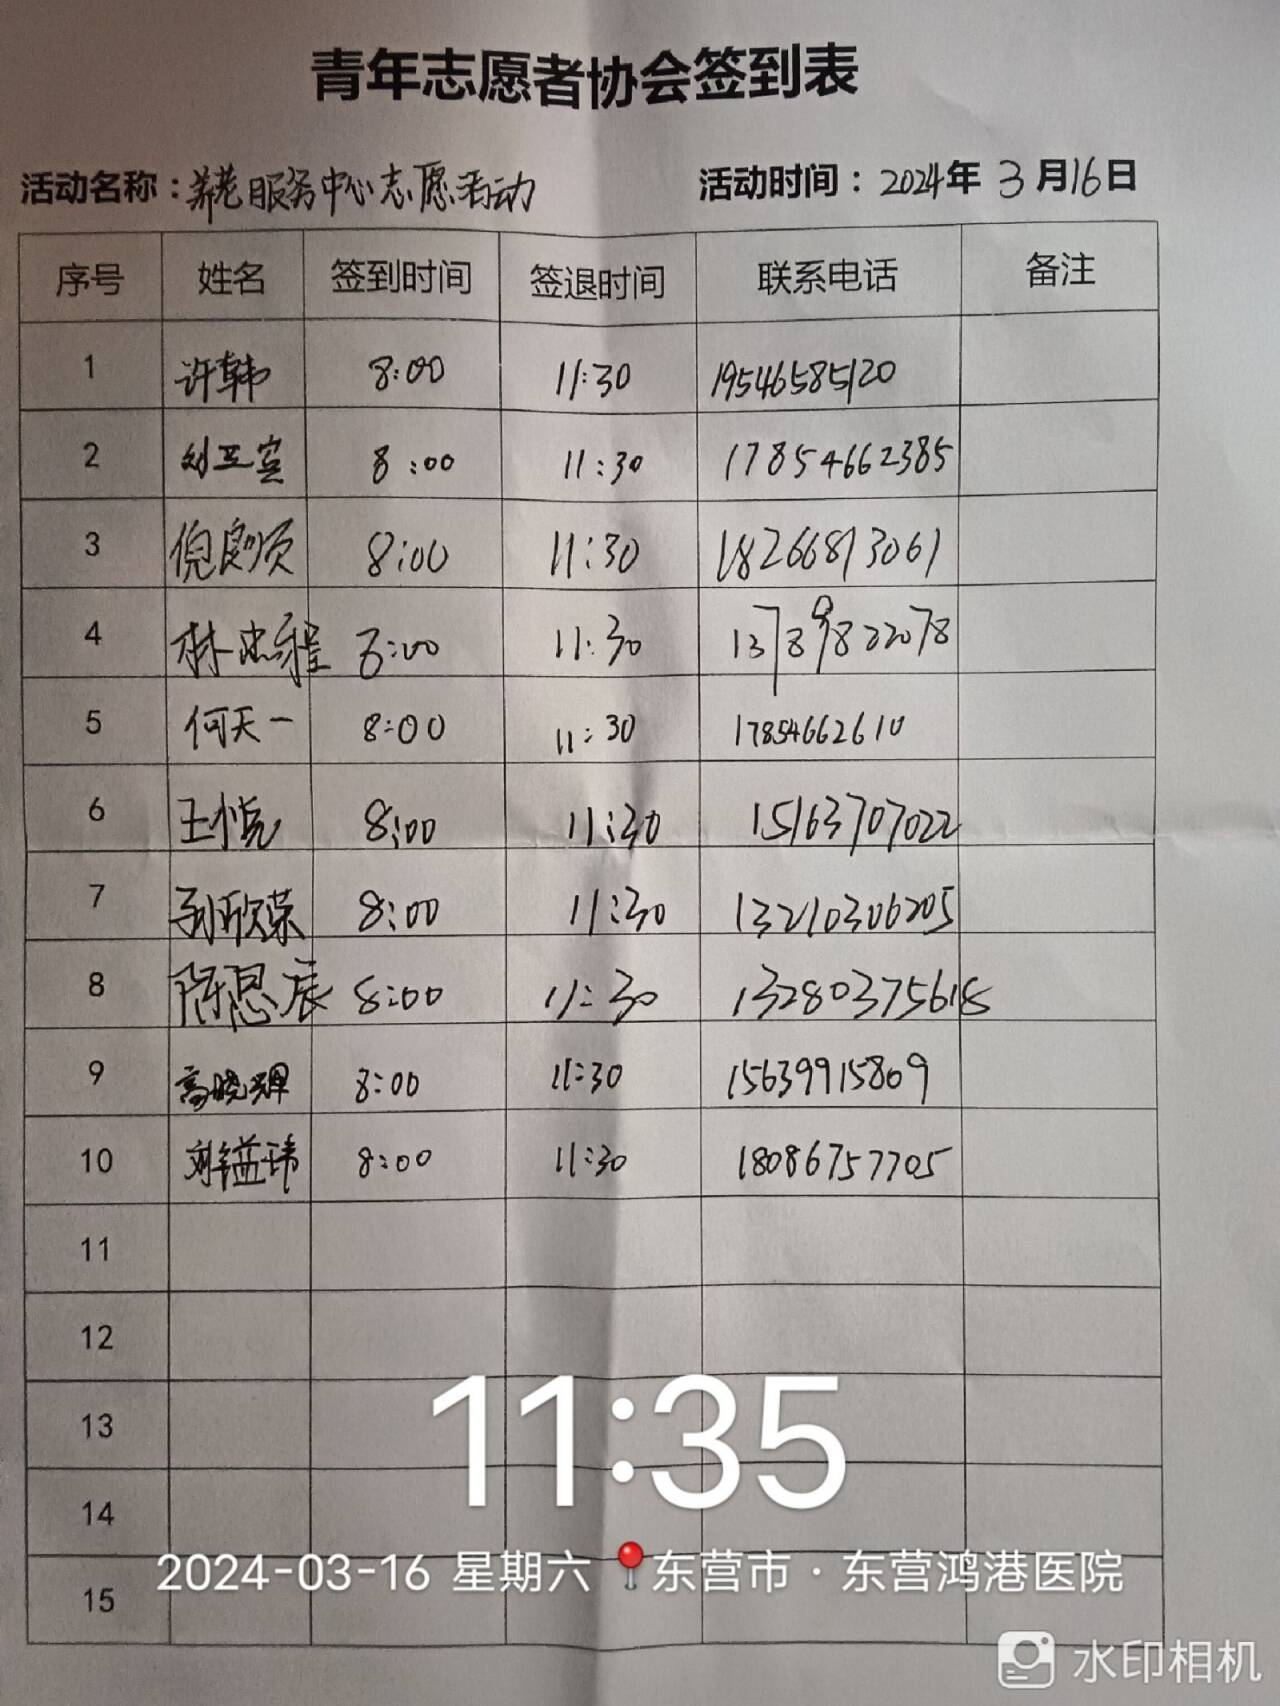 青年志愿者协会签到表
活动名称：养老服务中心志愿活动 活动时间：2024年 3月16日
序号 姓名 签到时间 签退时间 联系电话 备注
1 许韩 8:00 11:30 19546585120
2 8:00 11:30 17854662385
3 8:00 11:30 18266813061
4 8:00 11:30 13789822078
5 何天一 8:00 11:30 17854662610
6 王悦 8:00 11:30 15163707022
7 孙欣荣 8:00 11:30 13210306205
8 陈思辰 8:00 11:30 13280375618
9 高晓翠 8:00 11:30 15639915809
10 刘镒玮 8:00 11:30 18086757705
11
12
13
14
15
11:35
2024-03-16 星期六 东营市·东营鸿港医院
水印相机